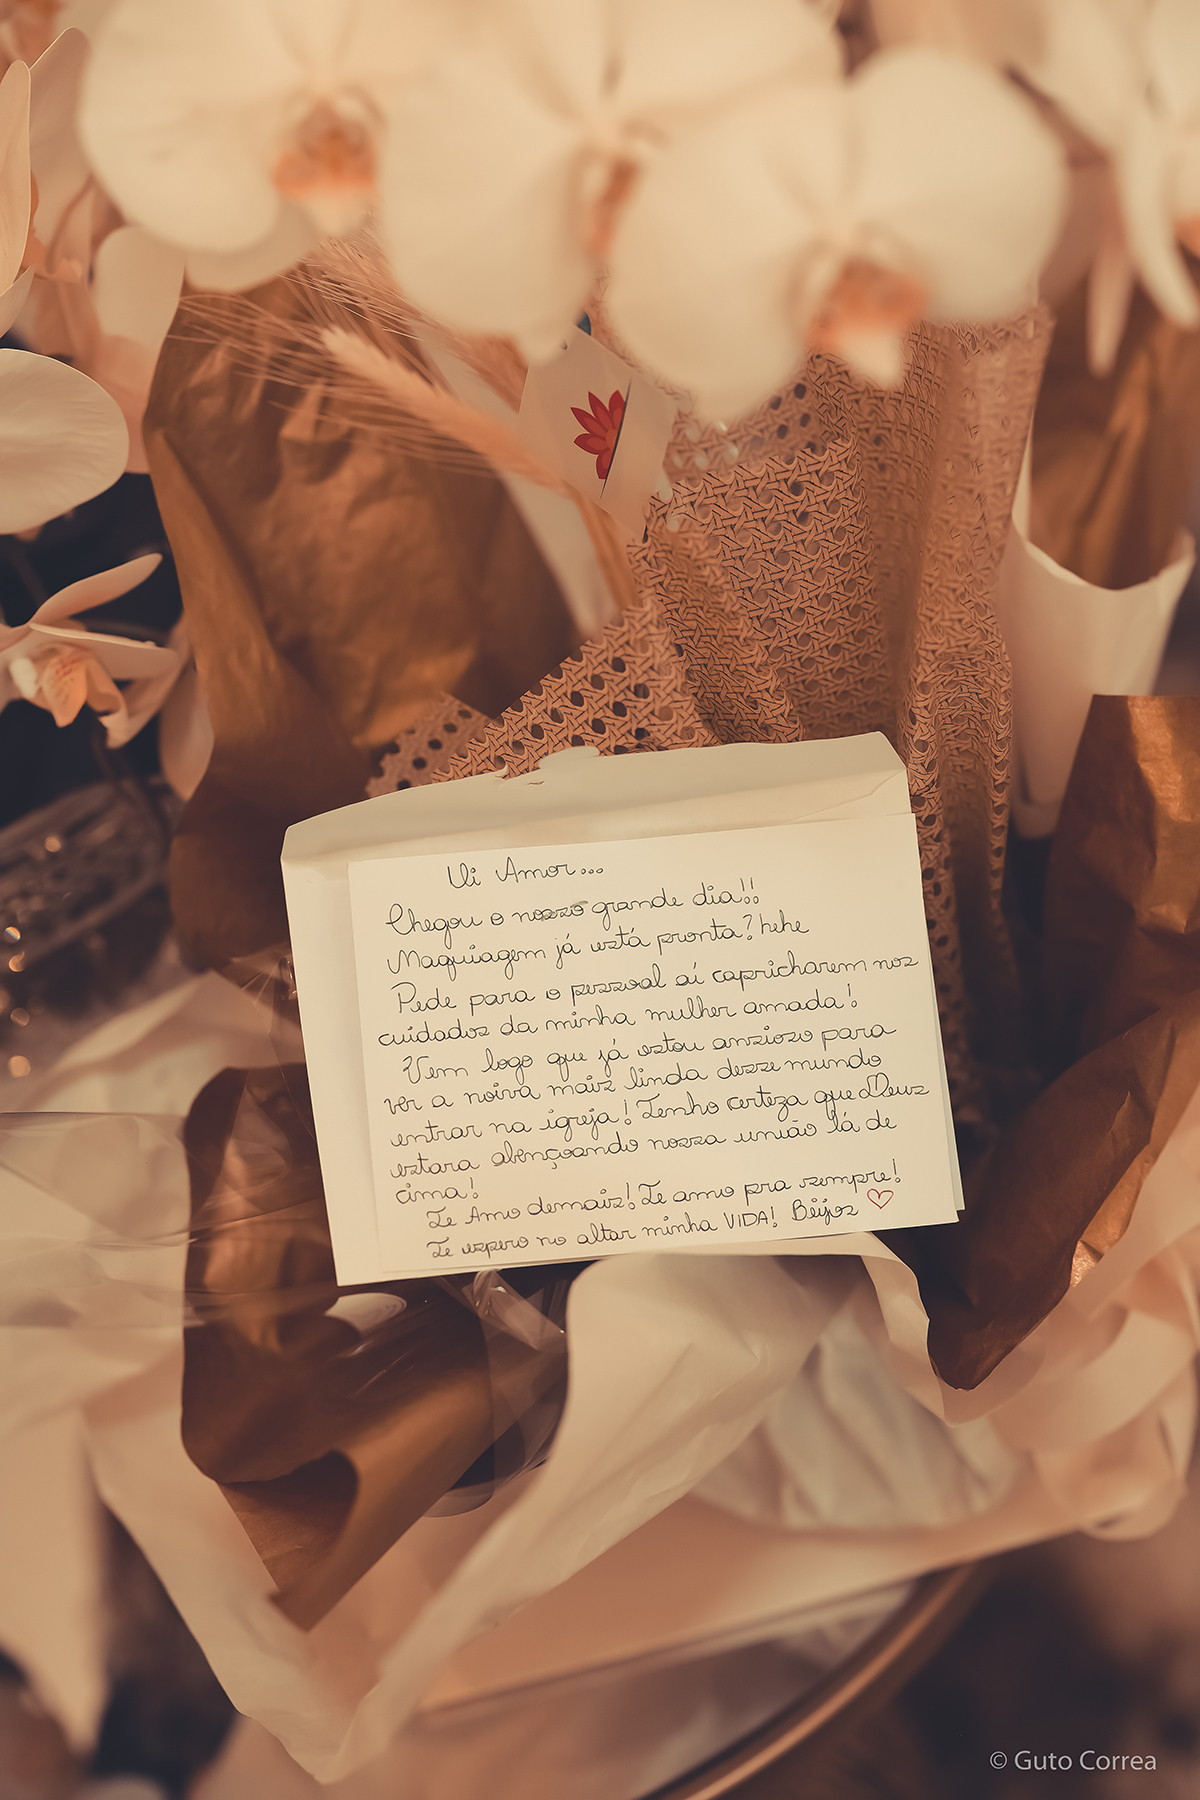 Oi Amor...
Chegou o nosso grande dia!!
Maquiagem já está pronta? hehe
Pede para o pessoal aí capricharem nos
cuidados da minha mulher amada!
Vem logo que já estou ansioso para
ver a noiva mais linda desse mundo
entrar na igreja! Tenho certeza que Deus
estara abençoando nossa união lá de
cima!
Te Amo demais! Te amo pra sempre!
Te espero no altar minha VIDA! Beijos
© Guto Correa